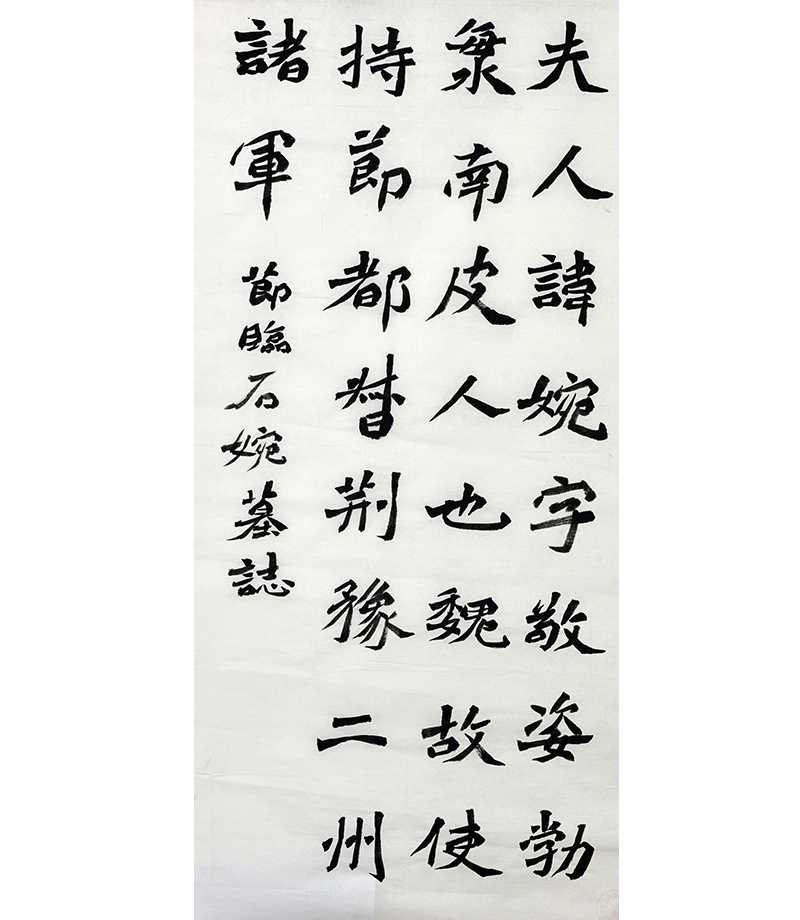 夫人諱婉字敬姿勃
海南皮人也魏故使
持節都督荊豫二州
諸軍 節臨石婉墓誌